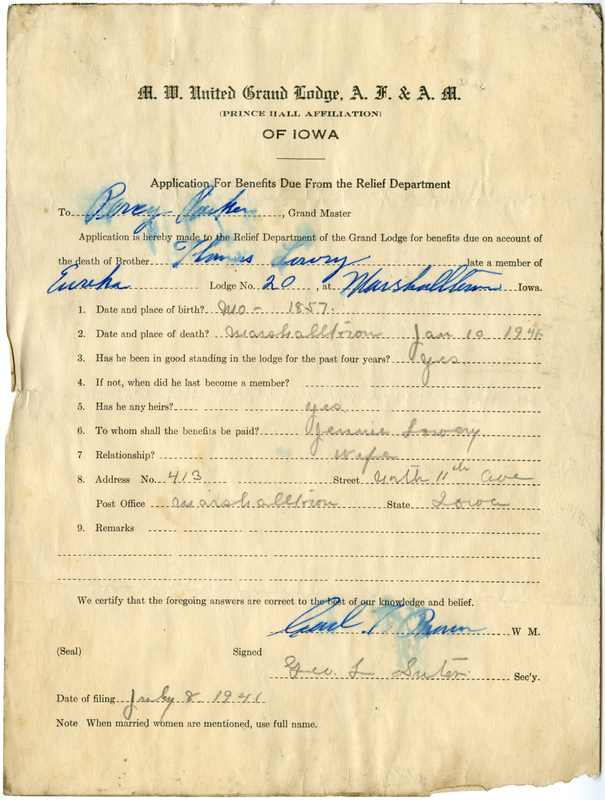 M. W. United Grand Lodge, A. F. & A. M.
(PRINCE HALL AFFILIATION)
OF IOWA
Application For Benefits Due From the Relief Department
To Percy Parker, Grand Master
Application is hereby made to the Relief Department of the Grand Lodge for benefits due on account of
the death of Brother Thomas Lowry late a member of
Eureka Lodge No. 20, at Marshalltown Iowa.
1. Date and place of birth? MO - 1857.
2. Date and place of death? Marshalltown Jan 10 1941
3. Has he been in good standing in the lodge for the past four years? Yes
4. If not, when did he last become a member?
5. Has he any heirs? yes
6. To whom shall the benefits be paid? Jennie Lowery
7 Relationship? Wife
8. Address No. 413 Street North 11th Ave
Post Office Marshalltown State Iowa
9. Remarks
We certify that the foregoing answers are correct to the best of our knowledge and belief.
Brown W M.
(Seal) Signed
Geo. L Suter Sec'y.
Date of filing 8 1941
Note When married women are mentioned, use full name.